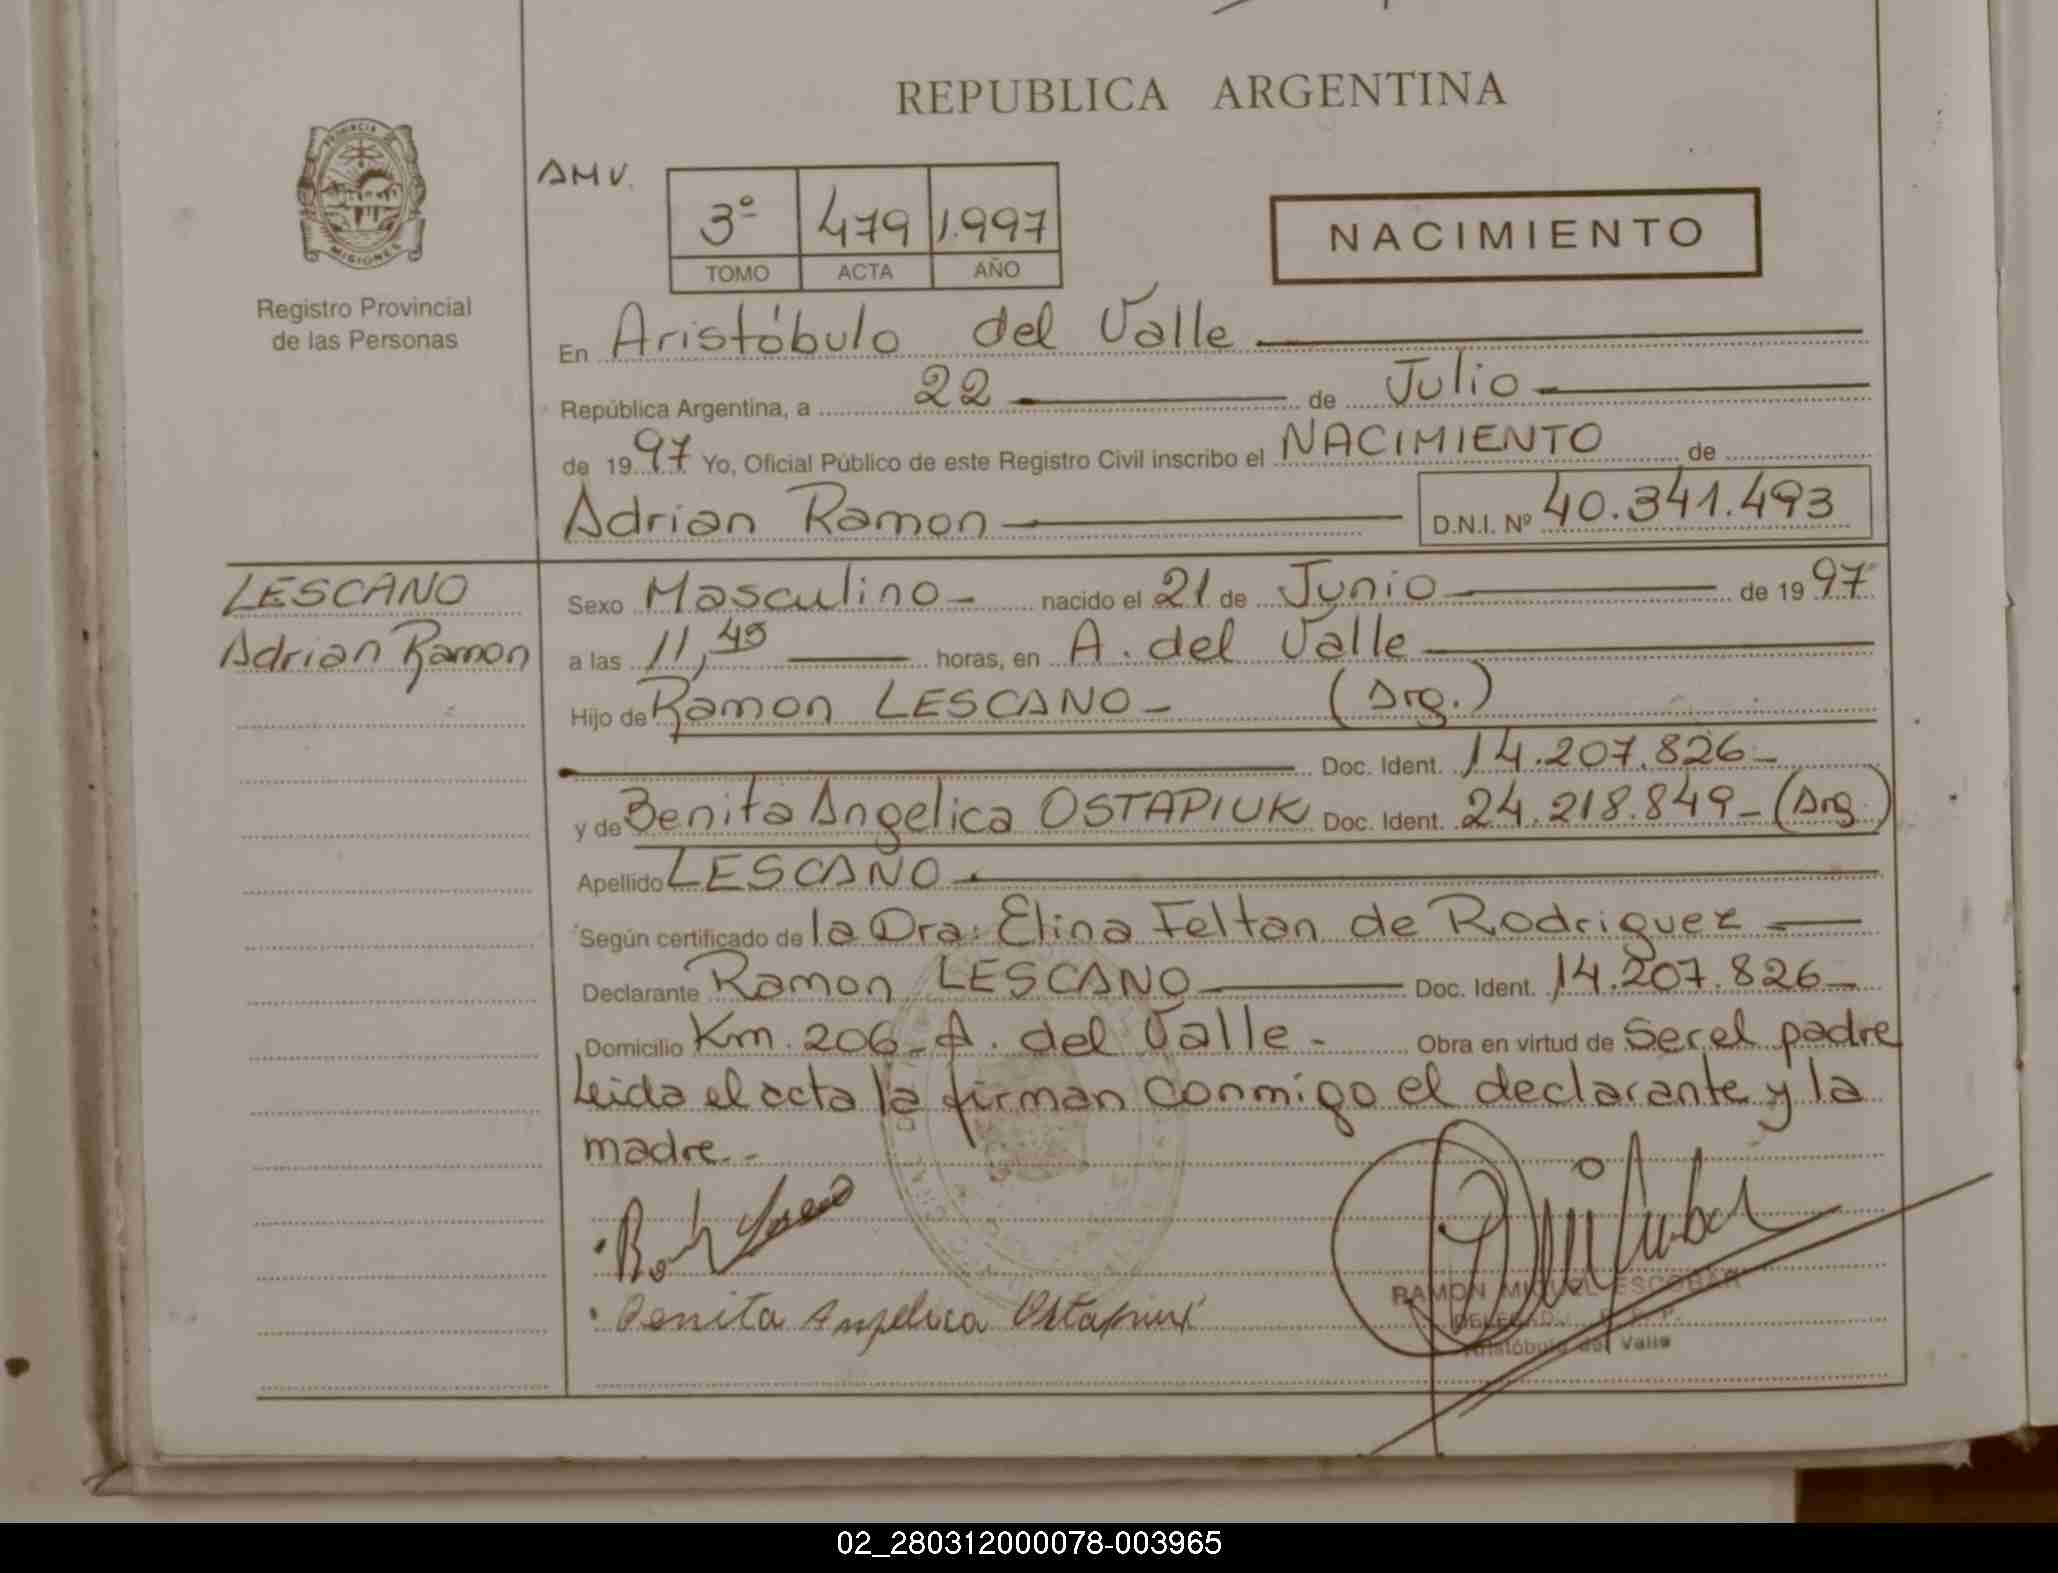 REPUBLICA ARGENTINA
PROVINCIA DE
MISIONES
Registro Provincial
de las Personas
AMV.
3º 479 1.997
TOMO ACTA AÑO
NACIMIENTO
En Aristóbulo del Valle
República Argentina, a 22 de Julio
de 1997 Yo, Oficial Público de este Registro Civil inscribo el NACIMIENTO de
Adrian Ramon D.N.I. Nº 40.341.493
LESCANO
Adrian Ramon
Sexo Masculino- nacido el 21 de Junio de 1997
a las 11,45 horas, en A. del Valle
Hijo de Ramon LESCANO- (Arg.)
Doc. Ident. 14.207.826-
y de Benita Angelica OSTAPIUK Doc. Ident. 24.218.849-(Arg.)
Apellido LESCANO
Según certificado de la Dra. Elina Feltan de Rodriguez
Declarante Ramon LESCANO Doc. Ident. 14.207.826-
Domicilio Km. 206-A. del Valle- Obra en virtud de ser el padre
Leida el acta la firman conmigo el declarante y la
madre.-
Benita Angelica Ostapiuk
RAMON MIGUEL ESCOBAR
Aristóbulo del Valle
02_280312000078-003965